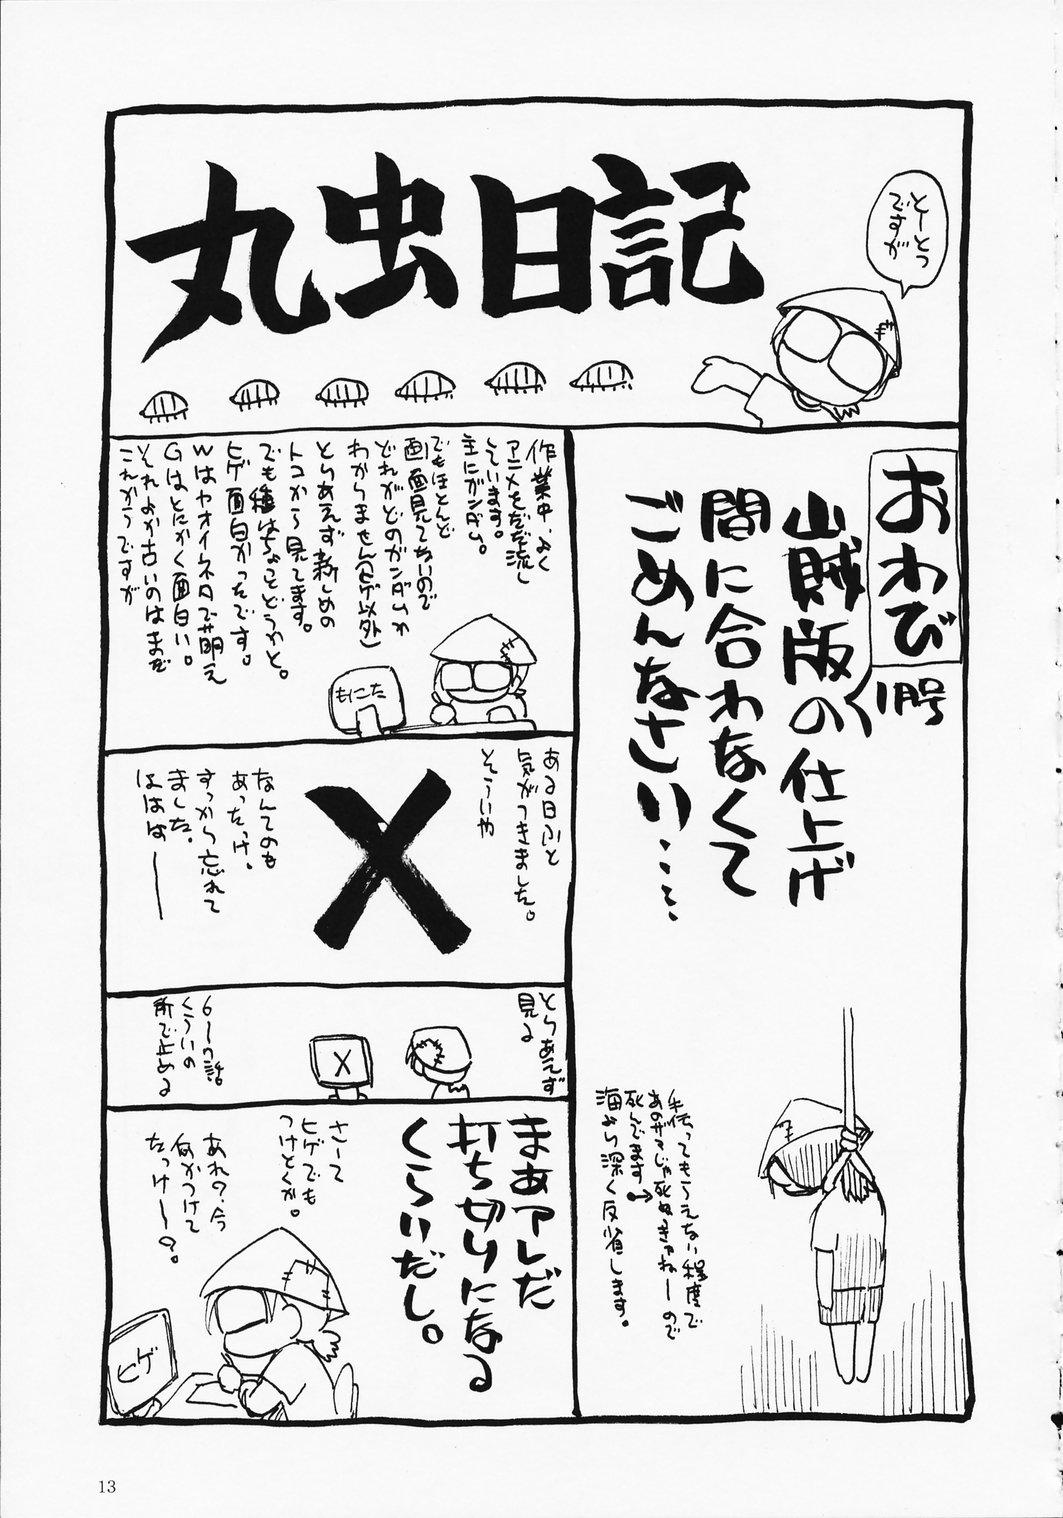 丸虫日記
とーとつ
ですが
おわび
1号
山賊版の仕上げ
間に合わなくて
ごめんなさい…
手伝ってもらえない程度で
死んでます
海より深く反省します。
作業中、よく
アニメをだだ流し
しています。
主にガンダム。
でもほとんど
画面見てないので
どれがどのガンダムか
わかりません(ヒゲ以外)
とりあえず新しめの
トコから見てます。
でも種はちょっとどうかと。
ヒゲ面白かったです。
Wはヤオイネタで萌え
Gはとにかく面白い。
それよか古いのはまだ
これからですが
もにた
ある日ふと
気がつきました。
そういや
X
なんてのも
あったっけ。
すっから忘れて
ました。
ははは——
とりあえず
見る
X
6〜7話
くらいの
所で止める
まぁアレだ
打ち切りになる
くらいだし。
さーて
ヒゲでも
つけとくか。
あれ?今
何かつけて
たっけー?。
ヒゲ
13